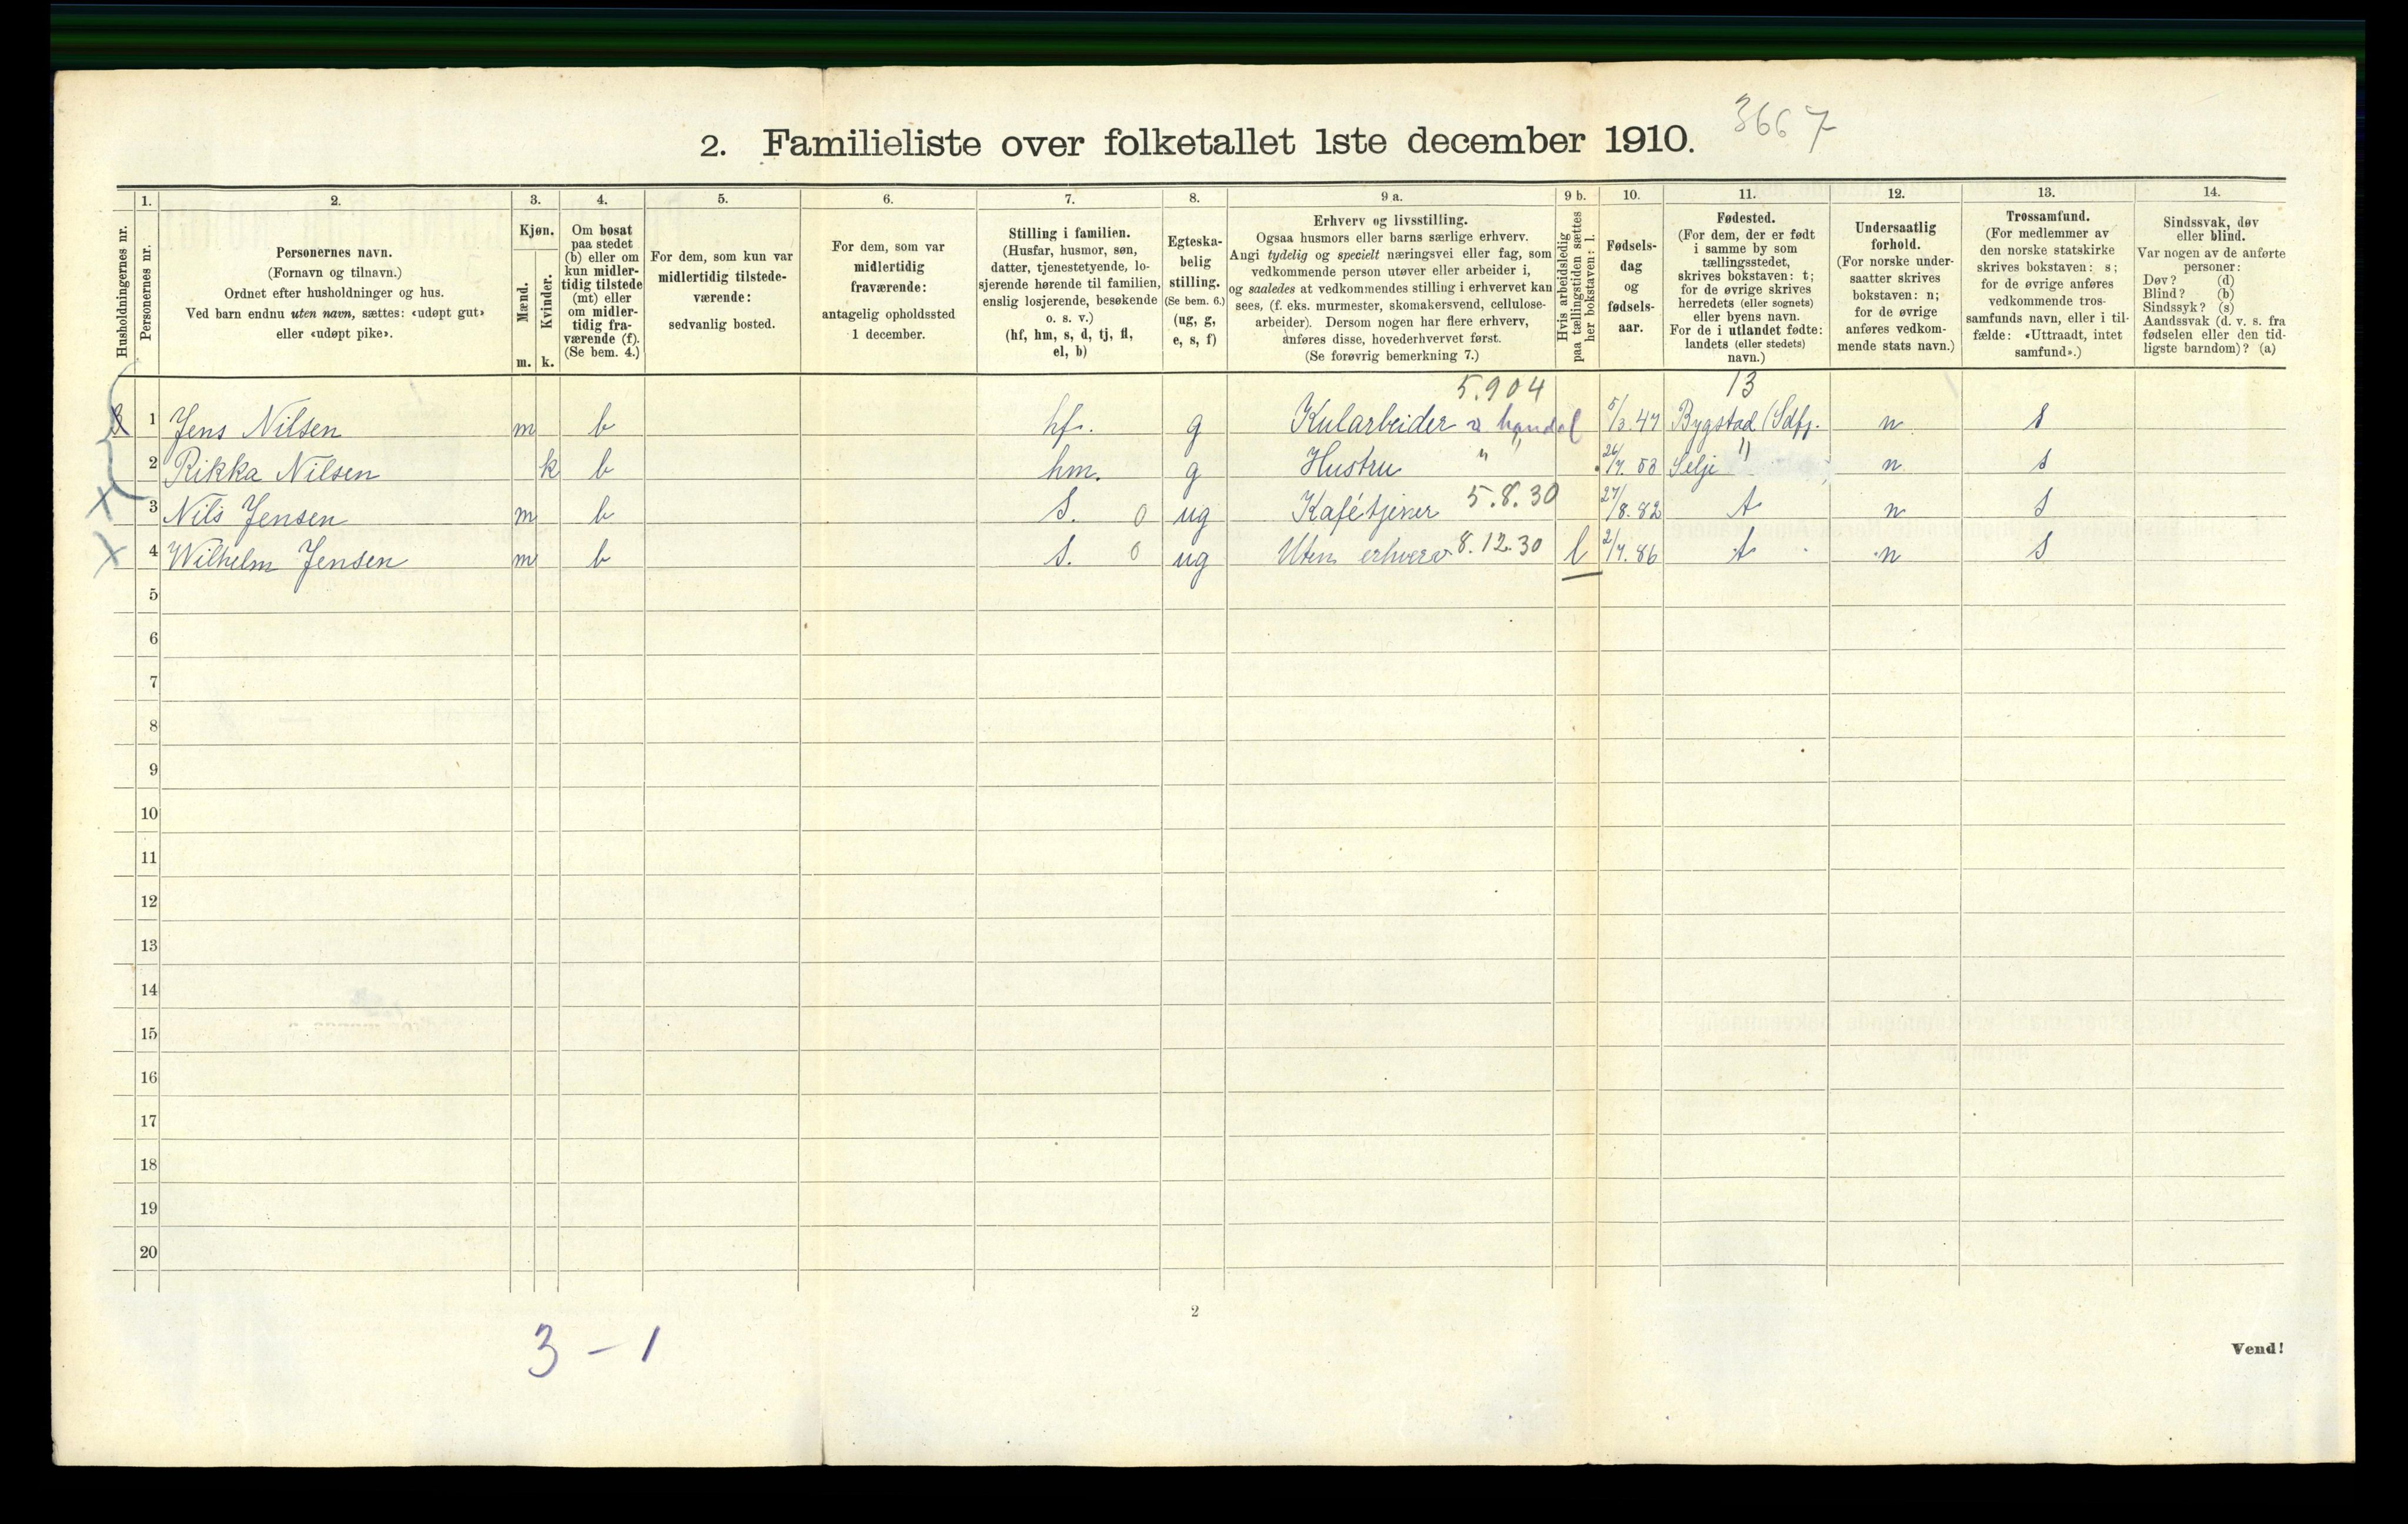 2. Familieliste over folketallet 1ste december 1910. 3667
Husholdningernes nr.
1. Personernes nr.
2. Personernes navn.
(Fornavn og tilnavn.)
Ordnet efter husholdninger og hus.
Ved barn endnu uten navn, sættes: «udøpt gut»
eller «udøpt pike».
3. Kjøn.
Mænd. m.
Kvinder. k.
4. Om bosat
paa stedet
(b) eller om
kun midler-
tidig tilstede
(mt) eller
om midler-
tidig fra-
værende (f).
(Se bem. 4.)
5. For dem, som kun var
midlertidig tilstede-
værende:
sedvanlig bosted.
6. For dem, som var
midlertidig
fraværende:
antagelig opholdssted
1 december.
7. Stilling i familien.
(Husfar, husmor, søn,
datter, tjenestetyende, lo-
sjerende hørende til familien,
enslig losjerende, besøkende
o. s. v.)
(hf, hm, s, d, tj, fl,
el, b)
8. Egteska-
belig
stilling.
(Se bem. 6.)
(ug, g,
e, s, f)
9 a. Erhverv og livsstilling.
Ogsaa husmors eller barns særlige erhverv.
Angi tydelig og specielt næringsvei eller fag, som
vedkommende person utøver eller arbeider i,
og saaledes at vedkommendes stilling i erhvervet kan
sees, (f. eks. murmester, skomakersvend, cellulose-
arbeider). Dersom nogen har flere erhverv,
anføres disse, hovederhvervet først.
(Se forøvrig bemerkning 7.)
9 b. Hvis arbeidsledig
paa tællingstiden sættes
her bokstaven: l.
10. Fødsels-
dag
og
fødsels-
aar.
11. Fødested.
(For dem, der er født
i samme by som
tællingsstedet,
skrives bokstaven: t;
for de øvrige skrives
herredets (eller sognets)
eller byens navn.
For de i utlandet fødte:
landets (eller stedets)
navn.)
12. Undersaatlig
forhold.
(For norske under-
saatter skrives
bokstaven: n;
for de øvrige
anføres vedkom-
mende stats navn.)
13. Trossamfund.
(For medlemmer av
den norske statskirke
skrives bokstaven: s;
for de øvrige anføres
vedkommende tros-
samfunds navn, eller i til-
fælde: «Uttraadt, intet
samfund».)
14. Sindssvak, døv
eller blind.
Var nogen av de anførte
personer:
Døv? (d)
Blind? (b)
Sindssyk? (s)
Aandssvak (d. v. s. fra
fødselen eller den tid-
ligste barndom)? (a)
5.904 13
1 Jens Nilsen m b hf. g Kularbeider v handel 5/3.47 Bygstad (Sdfj. n s
2 Rikka Nilsen k b hm. g Hustru " " 26/4.53 Selje " n s
3 Nils Jensen m b S. 0 ug Kafétjener 5.8.30 27/8.82 t n s
4 Wilhelm Jensen m b S. 0 ug Uten erhverv 8.12.30 l 2/4.86 t n s
5
6
7
8
9
10
11
12
13
14
15
16
17
18
19
20
2
3 - 1
Vend!